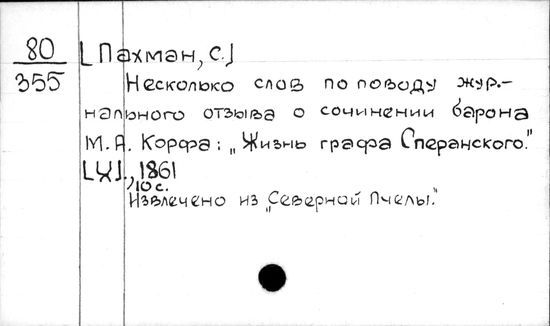 80
355
[Пахман, С.]
Несколько слов по поводу жур.-
нального отзыва о сочинении барона
М. А. Корфа: „Жизнь графа Сперанского."
[Х]., 1861
10 с.
Извлечено из „Северной Пчелы."